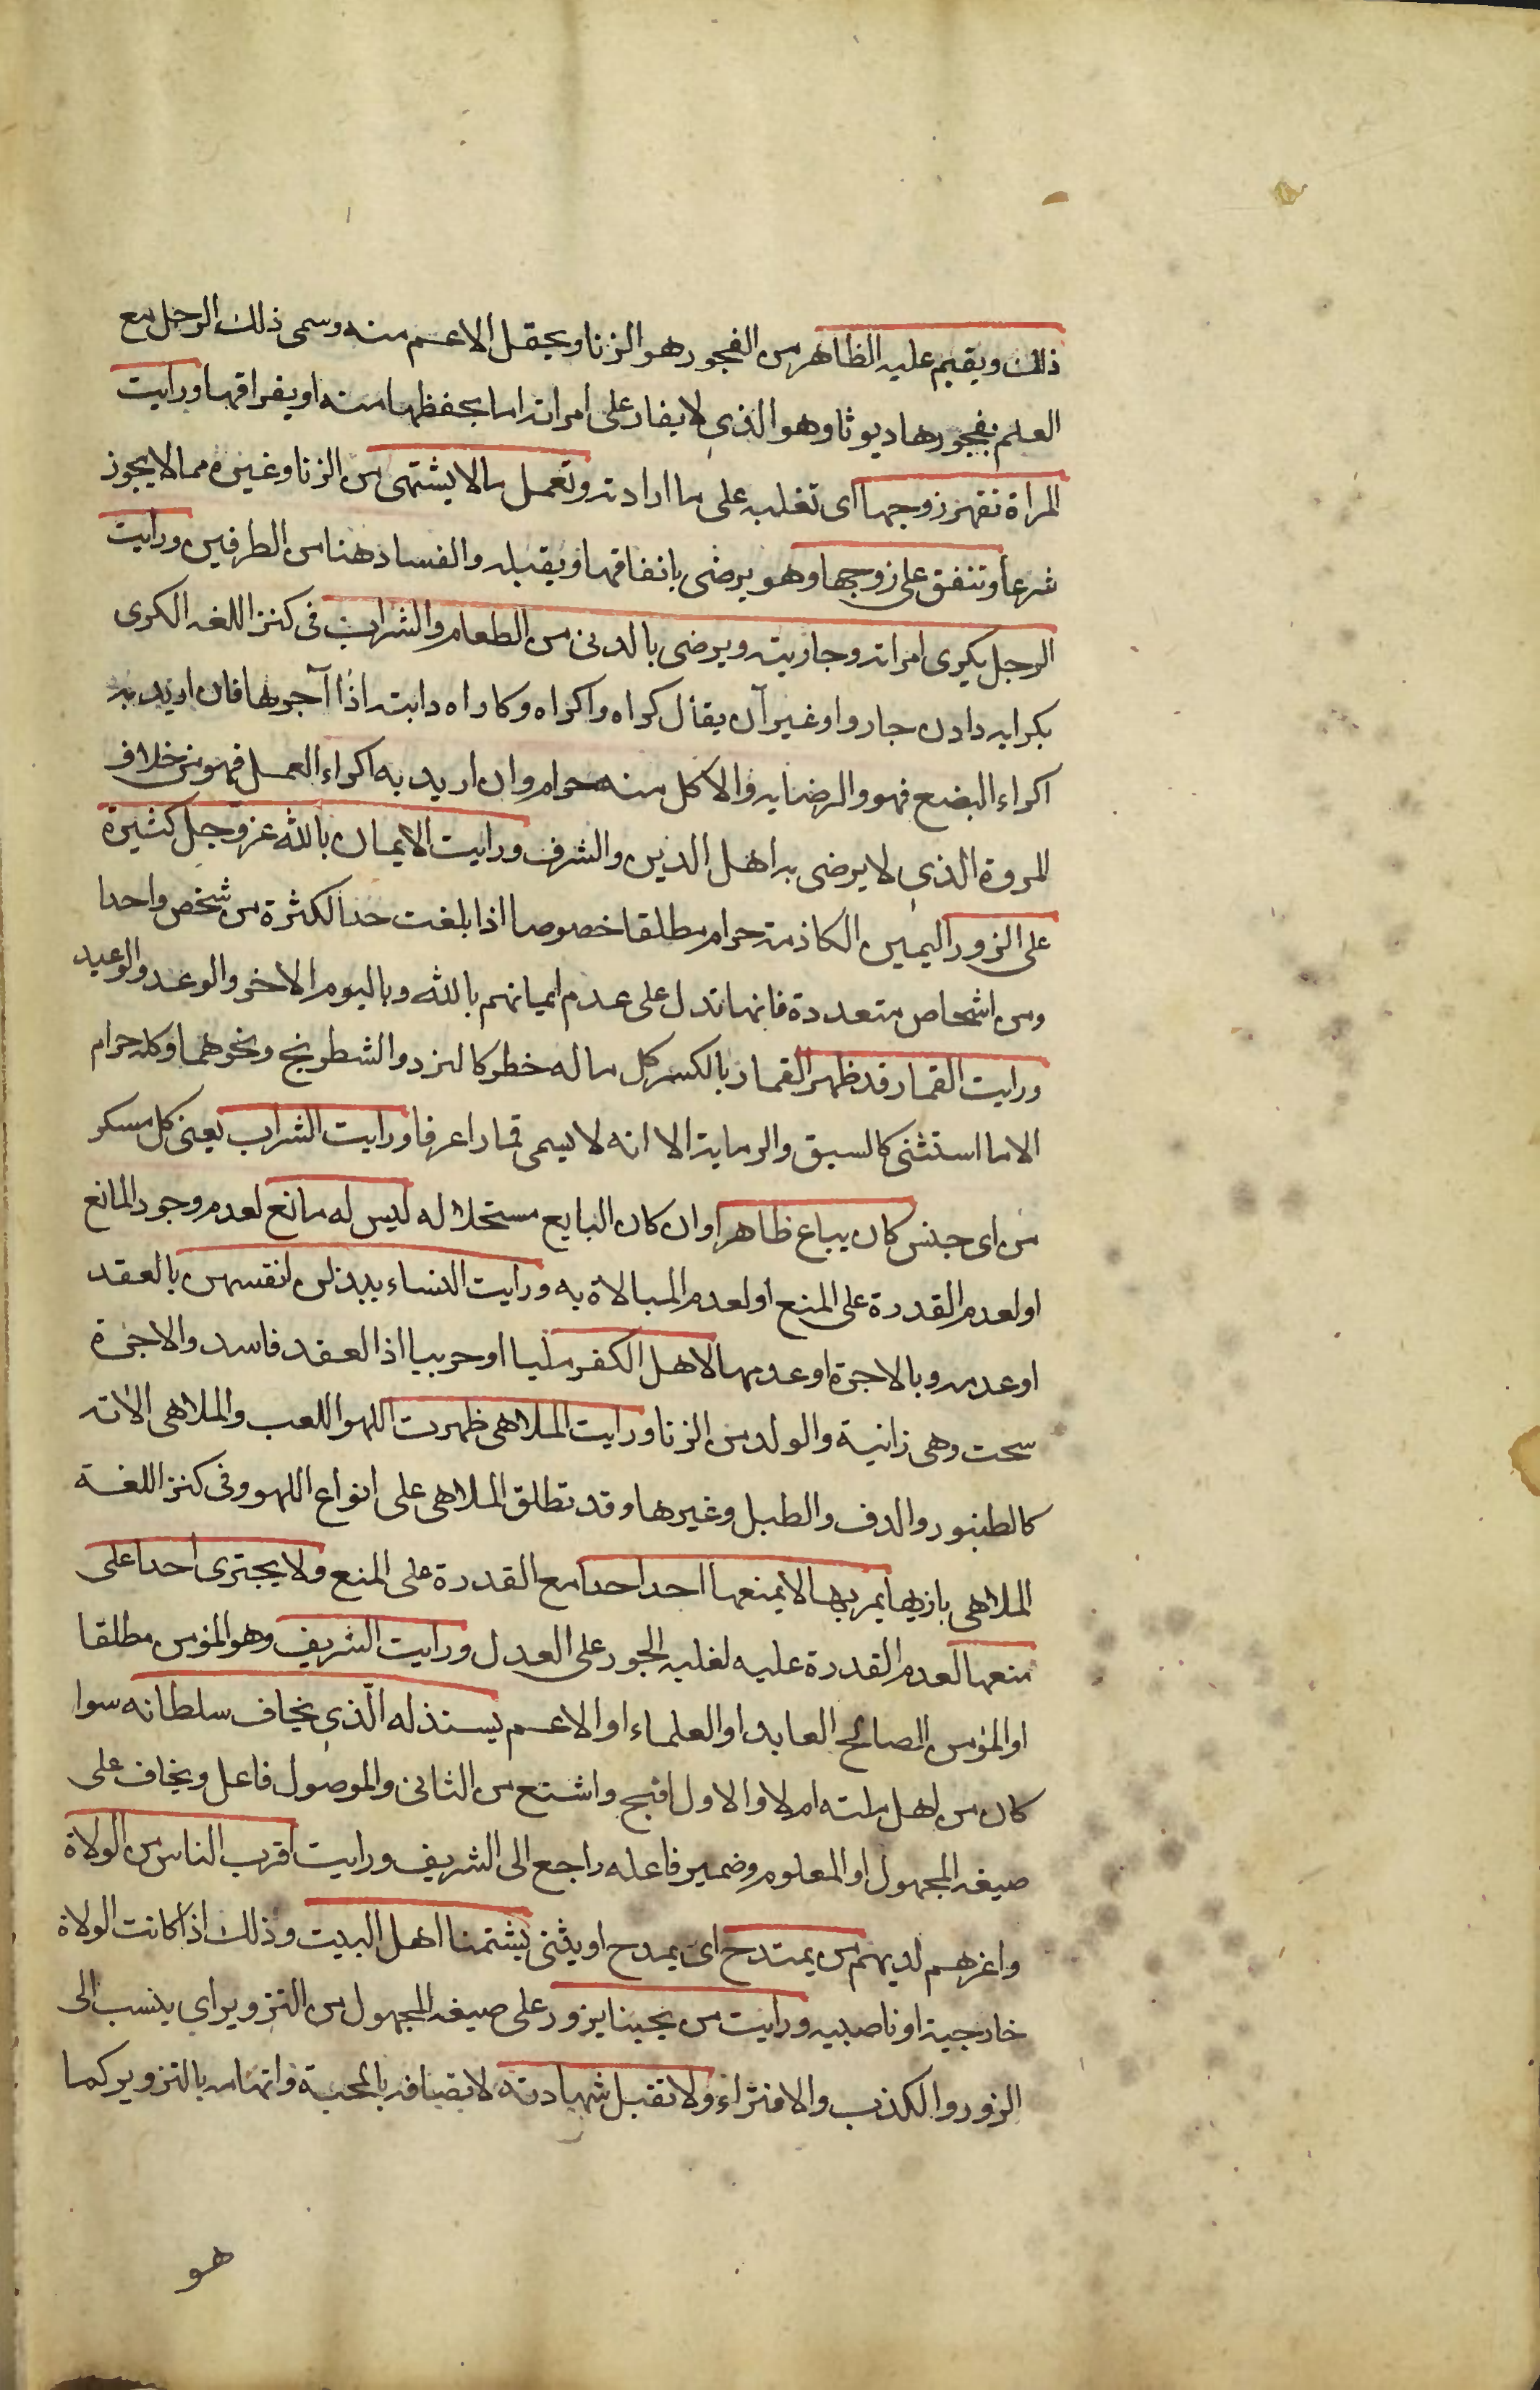 ذلك ويقيم عليه الظاهر من الفجور هو الزنا ويحتمل الاعم منه وسمى ذلك الرجل مع
العلم بفجورها ديوثا وهو الذي لا يغار على امراته اما بحفظها منه او يفراقها ورايت
المراة تقهر زوجها اى تغلبه على ما ارادته وتعمل ما لا يشتهى من الزنا وغيره مما لا يجوز
شرعا وتنفق على زوجها وهو يرضى بانفاقها ويقبله والفساد هنا من الطرفين ورايت
الرجل يكرى امراته وجاريته ويرضى بالدنى من الطعام والشراب فى كنز اللغه الكرى
بكرايه دادن جاروا وغير آن يقال كراه واكراه وكاراه دابته اذا آجرها فان اريد به
اكراء البضع فهو والرضا به والاكل منه حرام وان اريد به اكراء العمل فهو من خلاف
المروة الذي لا يرضى به اهل الدين والشرف ورايت الايمان بالله عز وجل كثيرة
على الزور اليمين الكاذبة حرام مطلقا خصوصا اذا بلغت حد الكثرة من شخص واحد
ومن اشخاص متعددة فانها تدل على عدم ايمانهم بالله وباليوم الاخر والوعد والوعيد
ورايت القمار قد ظهر القمار بالكسر كل ما له خطر كالنرد والشطرنج ونحوهما وكله حرام
الا ما استثنى كالسبق والرماية الا انه لا يسمى قمارا عرفا ورايت الشراب يعنى كل مسكر
من اى جنس كان يباع ظاهرا وان كان البايع مستحلا له ليس له مانع لعدم وجود المانع
او لعدم القدرة على المنع او لعدم المبالاة به ورايت النساء يبذلن انفسهن بالعقد
او عدمه وبالاجرة او عدمها لاهل الكفر مليا او حربيا اذ العقد فاسد والاجرة
سحت وهى زانية والولد من الزنا ورايت الملاهى ظهرت اللهو اللعب والملاهى الاته
كالطنبور والدف والطبل وغيرها وقد تطلق الملاهى على انواع اللهو وفى كنز اللغة
الملاهى بازيها يمر بها لا يمنعها احد احدا مع القدرة على المنع ولا يجترى احد على
منعها لعدم القدرة عليه لغلبه الجور على العدل ورايت الشريف وهو المؤمن مطلقا
او المؤمن الصالح العابد او العلماء او الاعم يستذله الّذي يخاف سلطانه سوا
كان من اهل ملته ام لا والاول اقبح واشنع من الثانى والموصول فاعل ويخاف على
صيغه المجهول او المعلوم وضمير فاعله راجع الى الشريف ورايت اقرب الناس من الولاة
واعزهم لديهم من يمتدح اى يمدح او يثنى بشتمنا اهل البيت وذلك اذا كانت الولاة
خارجية او ناصبيه ورايت من يحبنا يزور على صيغه المجهول من التزوير اي ينسب الى
الزور والكذب والافتراء ولا تقبل شهادته لاتصافه بالمحبة واتهامه بالتزوير كما
هو